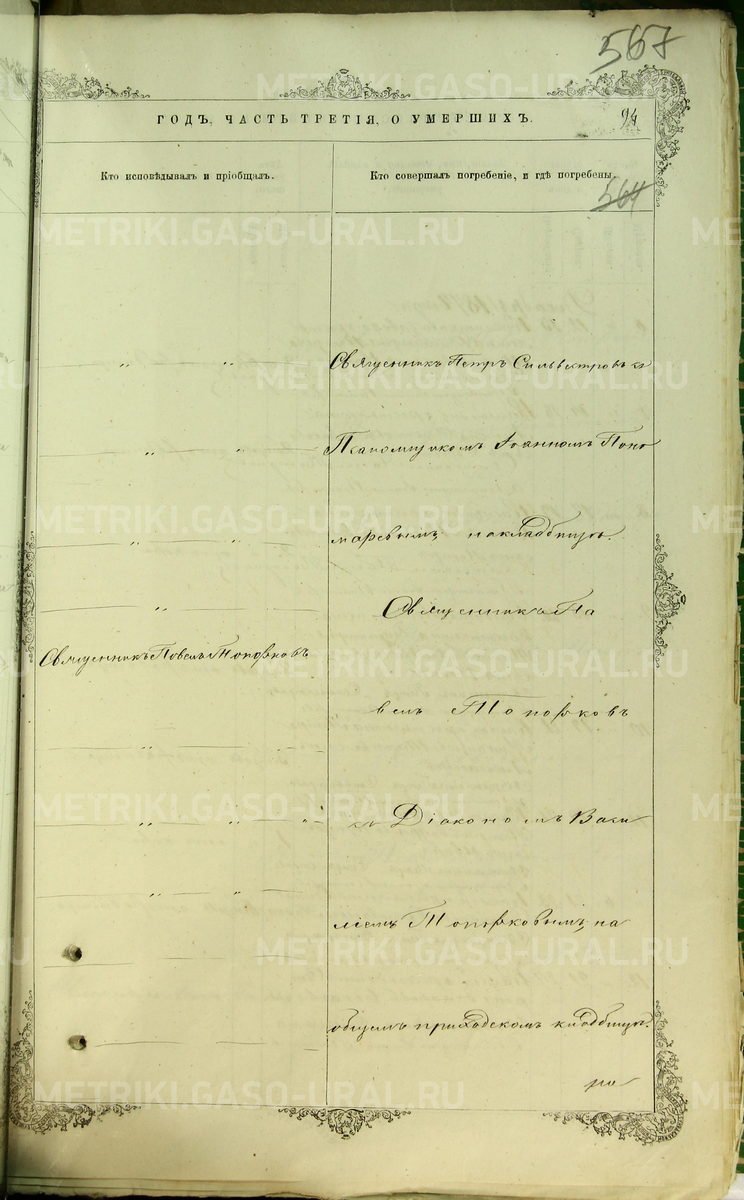 567
ГОДЪ, ЧАСТЬ ТРЕТІЯ, О УМЕРШИХЪ.
94
Кто исповѣдывалъ и пріобщалъ.
Кто совершалъ погребеніе, и гдѣ погребены.
564
Священникъ Петръ Сильвестровъ съ
Псаломщикомъ Іоанномъ Поно
маревымъ, на кладбищѣ.
Священникъ Па
Священникъ Павелъ Топорковъ
велъ Топорковъ
съ Діакономъ Васи
ліемъ Топорковымъ, на
общемъ приходскомъ кладбищѣ.
METRIKI.GASO-URAL.RU